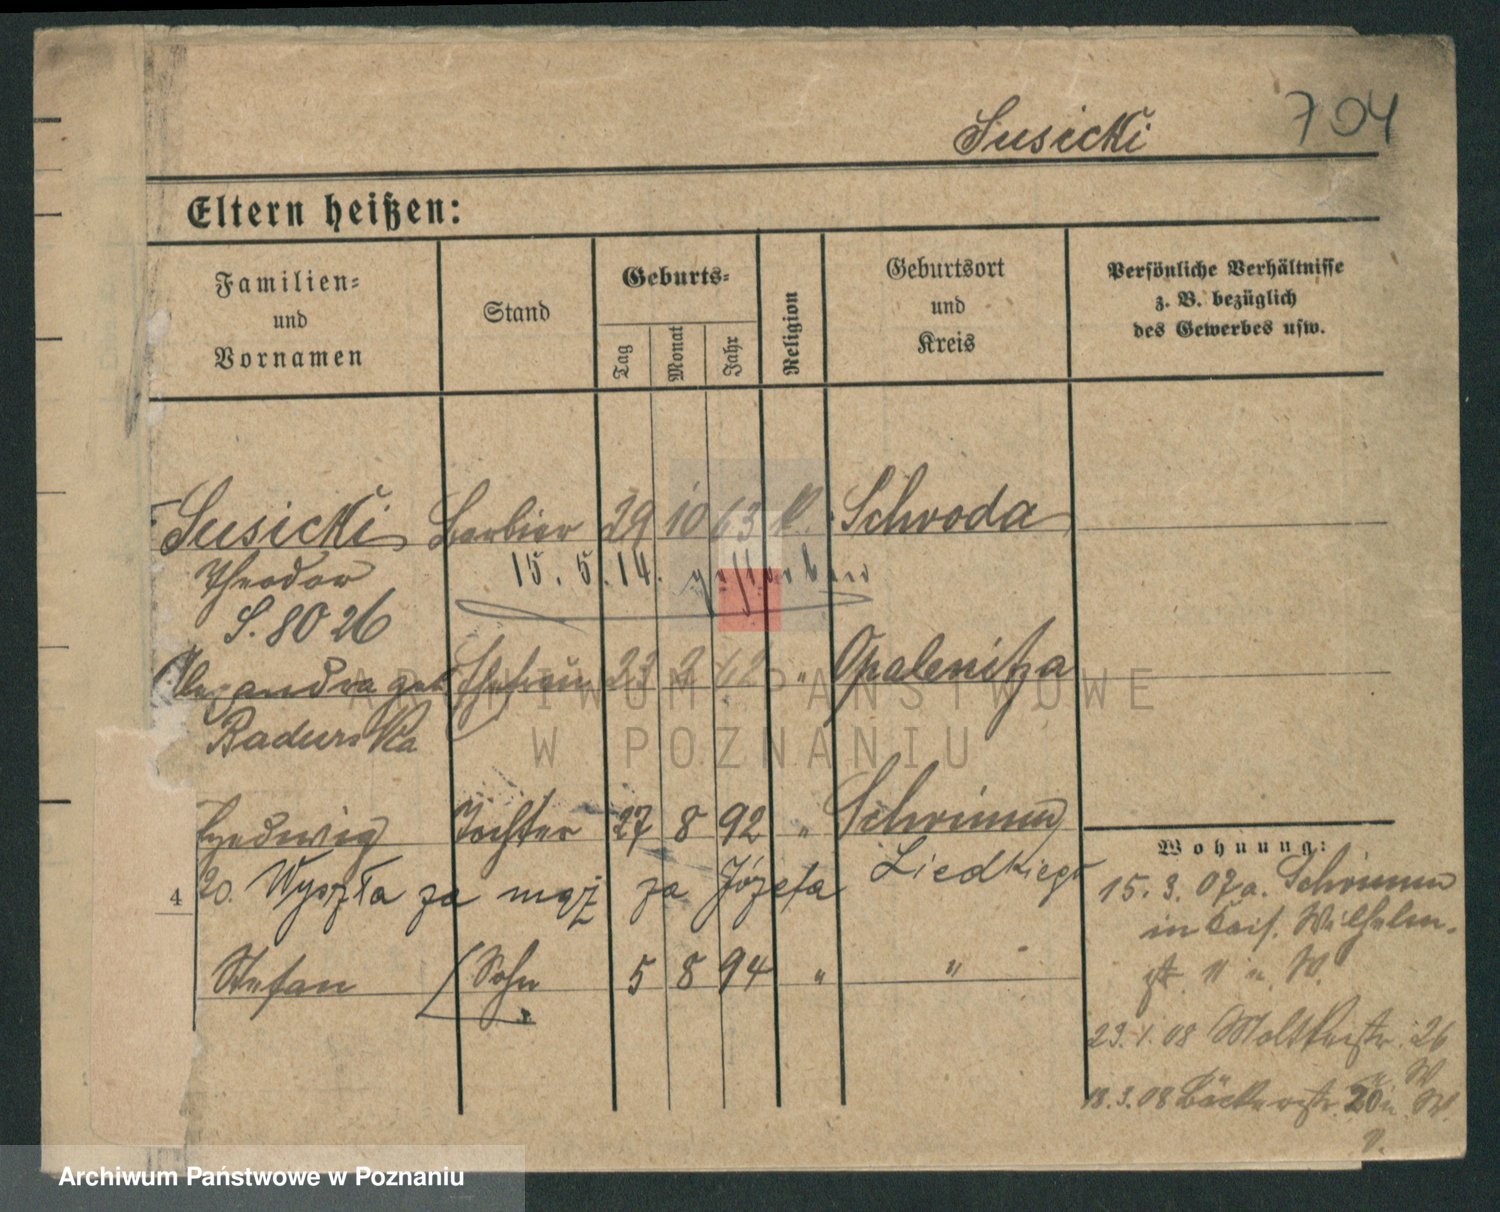 Susicki 704
Eltern heißen:
Familien= und Vornamen
Stand
Geburts=
Tag Monat Jahr
Religion
Geburtsort und Kreis
Persönliche Verhältnisse z. B. bezüglich des Gewerbes usw.
Susicki Barbier 29 10 63 k. Schroda
Theodor 15. 5. 14. gestorben
S. 8026
Alexandra geb Ehefrau 23 2 62 " Opalenitza
Radunska
Hedwig Tochter 27 8 92 " Schrimm
20. Wyszła za mąż za Józefa Liedkiego
4
Stefan Sohn 5 8 94 " "
Wohnung:
15. 3. 07 a. Schrimm
in Kais. Wilhelm-
str. 11 u. W.
23. 1. 08 Moltkestr. 26
W
18. 3. 08 Bäckerstr. 20 u. W.
ARCHIWUM PAŃSTWOWE
W POZNANIU
Archiwum Państwowe w Poznaniu